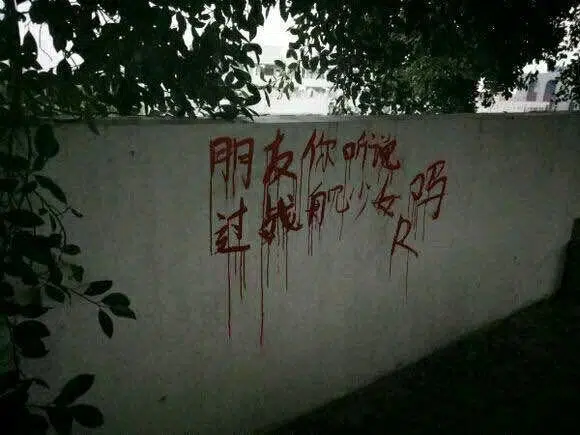 朋友你听说
过战舰少女吗
R